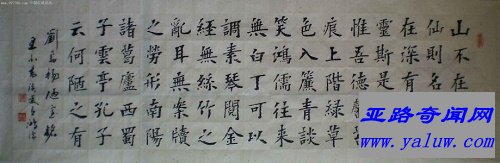 山不在
仙則名
在深
靈斯是
惟吾德
痕上階綠草
色入簾青談
笑鴻儒往來
無白丁可以
調素琴閱金
經無絲竹之
亂耳無案牘
之勞形南陽
諸葛廬西蜀
子雲亭孔子
云何陋之有
劉禹錫陋室銘
亚路奇闻网
www.yaluw.com